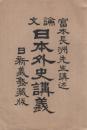 富本長洲先生講述
論文
日本外史講義
日新義塾藏版